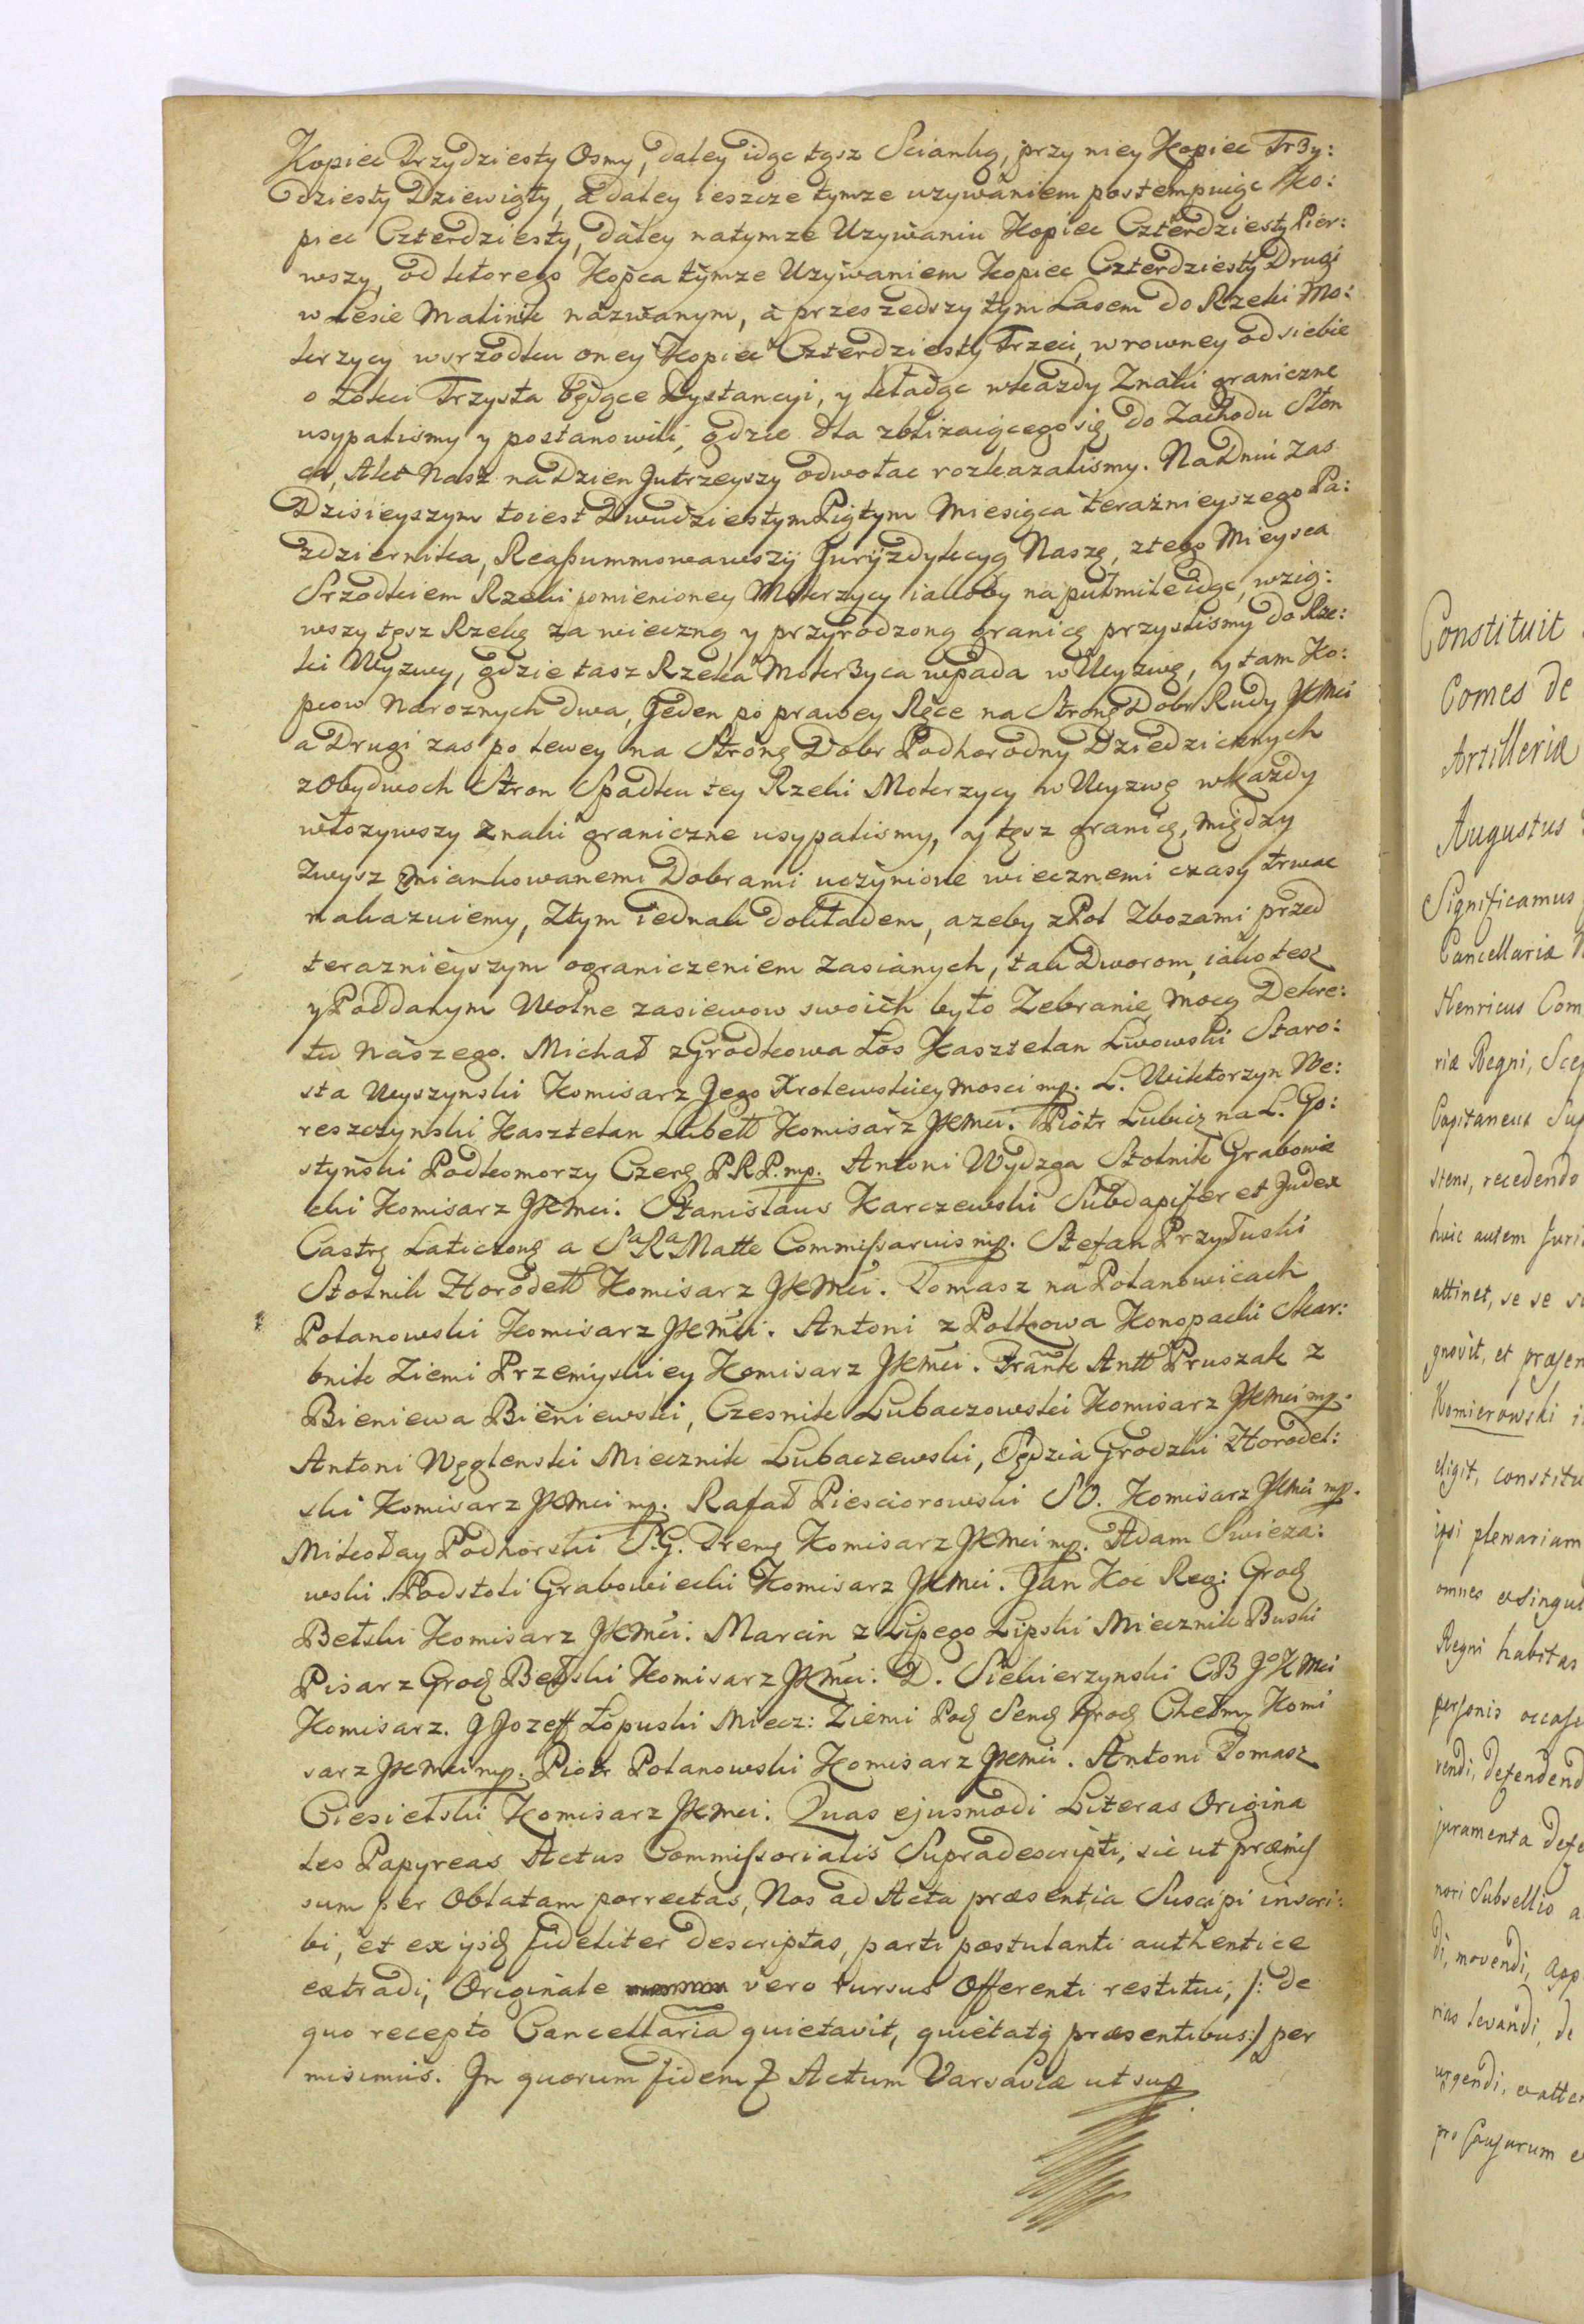 Kopiec Trzydziesty Osmy, daley idąc tąsz Scianką, przy niey Kopiec Trzy:
dziesty Dziewiąty, a daley ieszcze tymze uzywaniem postempuiąc Ko:
piec Czterdziesty, daley natymze Uzywaniu Kopiec Czterdziesty Pier:
wszy, od ktorego Kopca tymze Uzywaniem Kopiec Czterdziesty Drugi
w Lesie Malinik nazwanym, a przeszedszy tym Lasem do Rzeki Mo:
krzycy wsrzodku oney Kopiec Czterdziesty Trzeci, wrowney od siebie
o Łokci Trzysta będące Dystancyi, y kładąc wkazdy Znaki graniczne
usypalismy y postanowili, gdzie dla zblizaiącego się do Zachodu Słon
ca, Akt Nasz na Dzien Jutrzeyszy odwołac rozkazalismy. Na Dniu zas
Dzisieyszym toiest Dwudziestym Piątym Miesiąca teraznieyszego Pa:
zdziernika, Reaſsummowawszy Juryzdykcyą Naszę, ztego Mieysca
Srzodkiem Rzeki pomienioney Mokrzycy iakoby na pułmile idąc, wzią:
wszy tęsz Rzekę za wieczną y przyrodzoną granicę przyslismy do Rze:
ki Wyzwy, gdzie tasz Rzeka Mokrzyca wpada w Wyzwę, y tam Ko:
pcow Naroznych dwa, Jeden po prawey Ręce na Stronę Dobr Rudy JKMci
a Drugi zas po lewey na Stronę Dobr Podhorodny Dziedzicznych
z obydwoch Stron Spadku tey Rzeki Mokrzycy w Wyzwę wkazdy
włozywszy znaki graniczne usypalismy, y tęsz granicę, między
zwysz miankowanemi Dobrami uczynione wiecznemi czasy trwac
nakazuiemy, Ztym iednak dokładem, azeby z Pol Zbozami przed
teraznieyszym ograniczeniem zasianych, tak Dworom, iako tesz
y Poddanym Wolne zasiewow swoich było Zebranie, mocą Dekre:
tu naszego. Michał z Grodkowa Łos Kasztelan Lwowski Staro:
sta Wyszynski Komisarz Jego Krolewskiey Mosci mp. L. Wiktorzyn We:
reszczynski Kasztelan Lubell Komisarz JKMci. Piotr Lubicz na L. Go:
styński Podkomorzy Czers PRP. mp. Antoni Wydzga Stolnik Grabowie
cki Komisarz JKMci. Stanislaus Karczewski Subdapifer et Judex
Castrę Laticzonę a SᵃRᵃMatte Commiſsarius mp. Stefan Przyłuski
Stolnik Horodell Komisarz JKMci. Tomasz na Polanowicach
Polanowski Komisarz JKMci. Antoni z Polkowa Konopacki Skar:
bnik Ziemi Przemyskiey Komisarz JKMci. Frank Antt Pruszak z
Bieniewa Bieniewski, Czesnik Lubaczowski Komisarz JKMci mp.
Antoni Węglenski Miecznik Lubaczewski, Sędzia Grodzki Horodel:
ski Komisarz JKMci mp. Rafał Piesciorowski SO. Komisarz JKMci mp.
Mikołay Podhorski P.G. Trem Komisarz JKMci mp. Adam Swieza:
wski. Podstoli Grabowiecki Komisarz JKMci. Jan Koc Reg: Grod
Bełski Komisarz JKMci. Marcin z Lipego Lipski Miecznik Buski
Pisarz Grod Bełski Komisarz JKMci. D. Siekierzynski CB JᵒKMci
Komisarz. J Jozeff Łopuski Miecz: Ziemi Pod Send Grod Chełm Komi
sarz JKMci mp. Piotr Polanowski Komisarz JKMci. Antoni Tomasz
Ciesielski Komisarz JKMci. Quas ejusmodi Literas Origina
les Papyreas Actus Commiſsorialis Supradescripti, sic ut præmiſ
sum per Oblatam porrectas, Nos ad Acta præsentia Suscipi inscri:
bi, et ex ijsd fideliter descriptas, parti postulanti authentice
extradi, Originale vero rursus Offerenti restitui, /: de
quo recepto Cancellaria quietavit, quietatq præsentibus:/ per
misimus. In quorum fidem Actum Varsaviæ ut sup
Constituit
Comes de
Artilleriæ
Augustus
Significamus
Cancellaria
Henricus Com
riæ Regni, Scep
Capitaneus Sup
stens, recedendo
huic autem Juri
attinet, se se
gnovit, et præsen
Komierowski
eligit, constitu
ipsi plenariam
omnes et singul
Regni habitas
personis occas
rendi, defendend
juramenta defe
nori Subsellio a
di, movendi, app
rias levandi, de
urgendi, et atten
pro